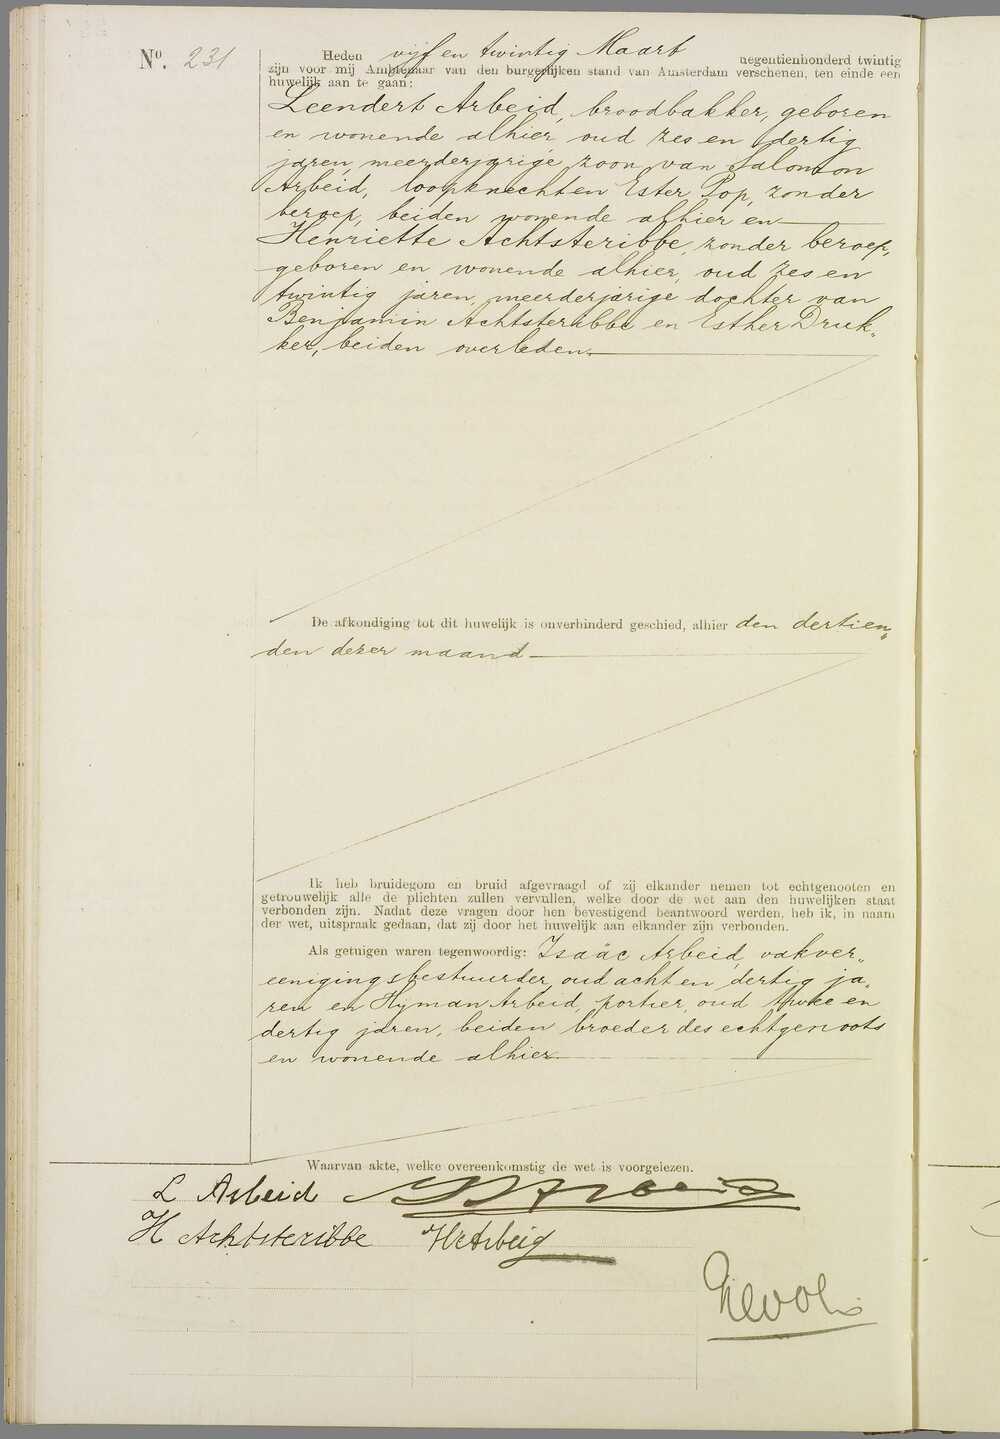 Nº. 231
Heden vijf en twintig Maart negentienhonderd twintig
zijn voor mij Ambtenaar van den burgerlijken stand van Amsterdam verschenen, ten einde een
huwelijk aan te gaan:
Leendert Arbeid, broodbakker, geboren
en wonende alhier, oud zes en dertig
jaren, meerderjarige zoon van Salomon
Arbeid, loopknecht en Ester Pop, zonder
beroep, beiden wonende alhier en
Henriette Achtsteribbe, zonder beroep,
geboren en wonende alhier, oud zes en
twintig jaren, meerderjarige dochter van
Benjamin Achtsteribbe en Esther Druk„
ker, beiden overleden.
De afkondiging tot dit huwelijk is onverhinderd geschied, alhier den dertien„
den dezer maand
Ik heb bruidegom en bruid afgevraagd of zij elkander nemen tot echtgenooten en
getrouwelijk alle de plichten zullen vervullen, welke door de wet aan den huwelijken staat
verbonden zijn. Nadat deze vragen door hen bevestigend beantwoord werden, heb ik, in naam
der wet, uitspraak gedaan, dat zij door het huwelijk aan elkander zijn verbonden.
Als getuigen waren tegenwoordig: Isaäc Arbeid, vakver„
eenigingsbestuurder, oud acht en dertig ja„
ren en Hijman Arbeid, portier, oud twee en
dertig jaren, beiden broeder des echtgenoots
en wonende alhier
Waarvan akte, welke overeenkomstig de wet is voorgelezen.
L Arbeid Arbeid
H Achtsteribbe H Arbeid